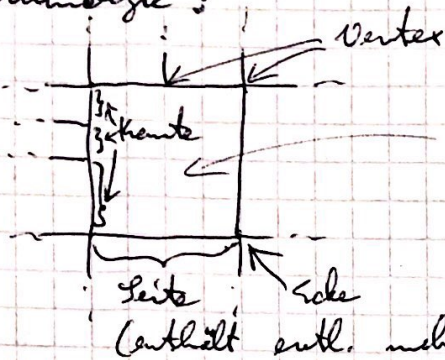 Vertex
Kante
Seite
Ecke
(enthält evtl. meh